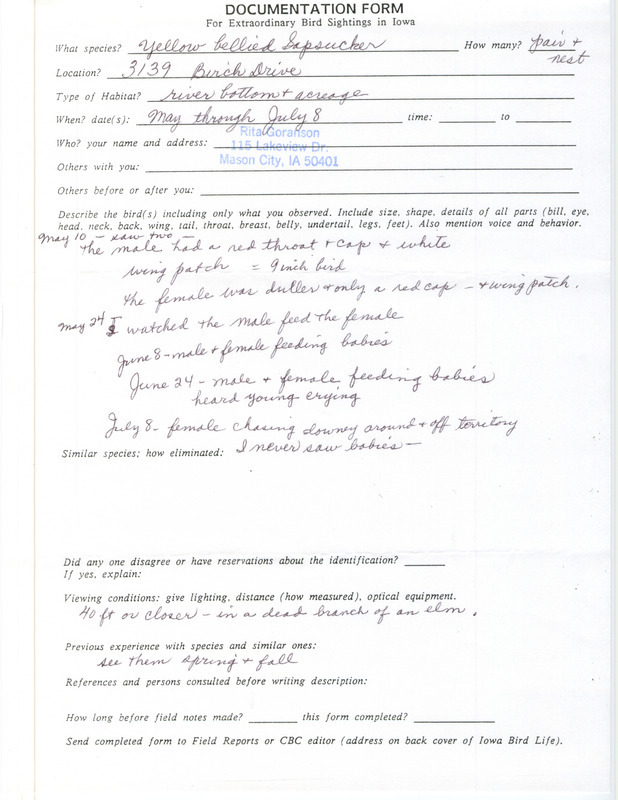 DOCUMENTATION FORM
For Extraordinary Bird Sightings in Iowa
What species? Yellow bellied Sapsucker How many? pair +
nest
Location? 3139 Birch Drive
Type of Habitat? river bottom + acreage
When? date(s): May through July 8 time: to
Rita Goranson
Who? your name and address: 115 Lakeview Dr.
Mason City, IA 50401
Others with you:
Others before or after you:
Describe the bird(s) including only what you observed. Include size, shape, details of all parts (bill, eye,
head, neck, back, wing, tail, throat, breast, belly, undertail, legs, feet). Also mention voice and behavior.
May 10 - saw two -
the male had a red throat + cap + white
wing patch = 9 inch bird
the female was duller + only a red cap - + wing patch.
May 24 I watched the male feed the female
June 8 - male + female feeding babies
June 24 - male + female feeding babies
heard young crying
July 8 - female chasing downey around + off territory
Similar species; how eliminated: I never saw babies -
Did any one disagree or have reservations about the identification?
If yes, explain:
Viewing conditions: give lighting, distance (how measured), optical equipment.
40 ft or closer - in a dead branch of an elm.
Previous experience with species and similar ones:
see them spring + fall
References and persons consulted before writing description:
How long before field notes made? this form completed?
Send completed form to Field Reports or CBC editor (address on back cover of Iowa Bird Life).